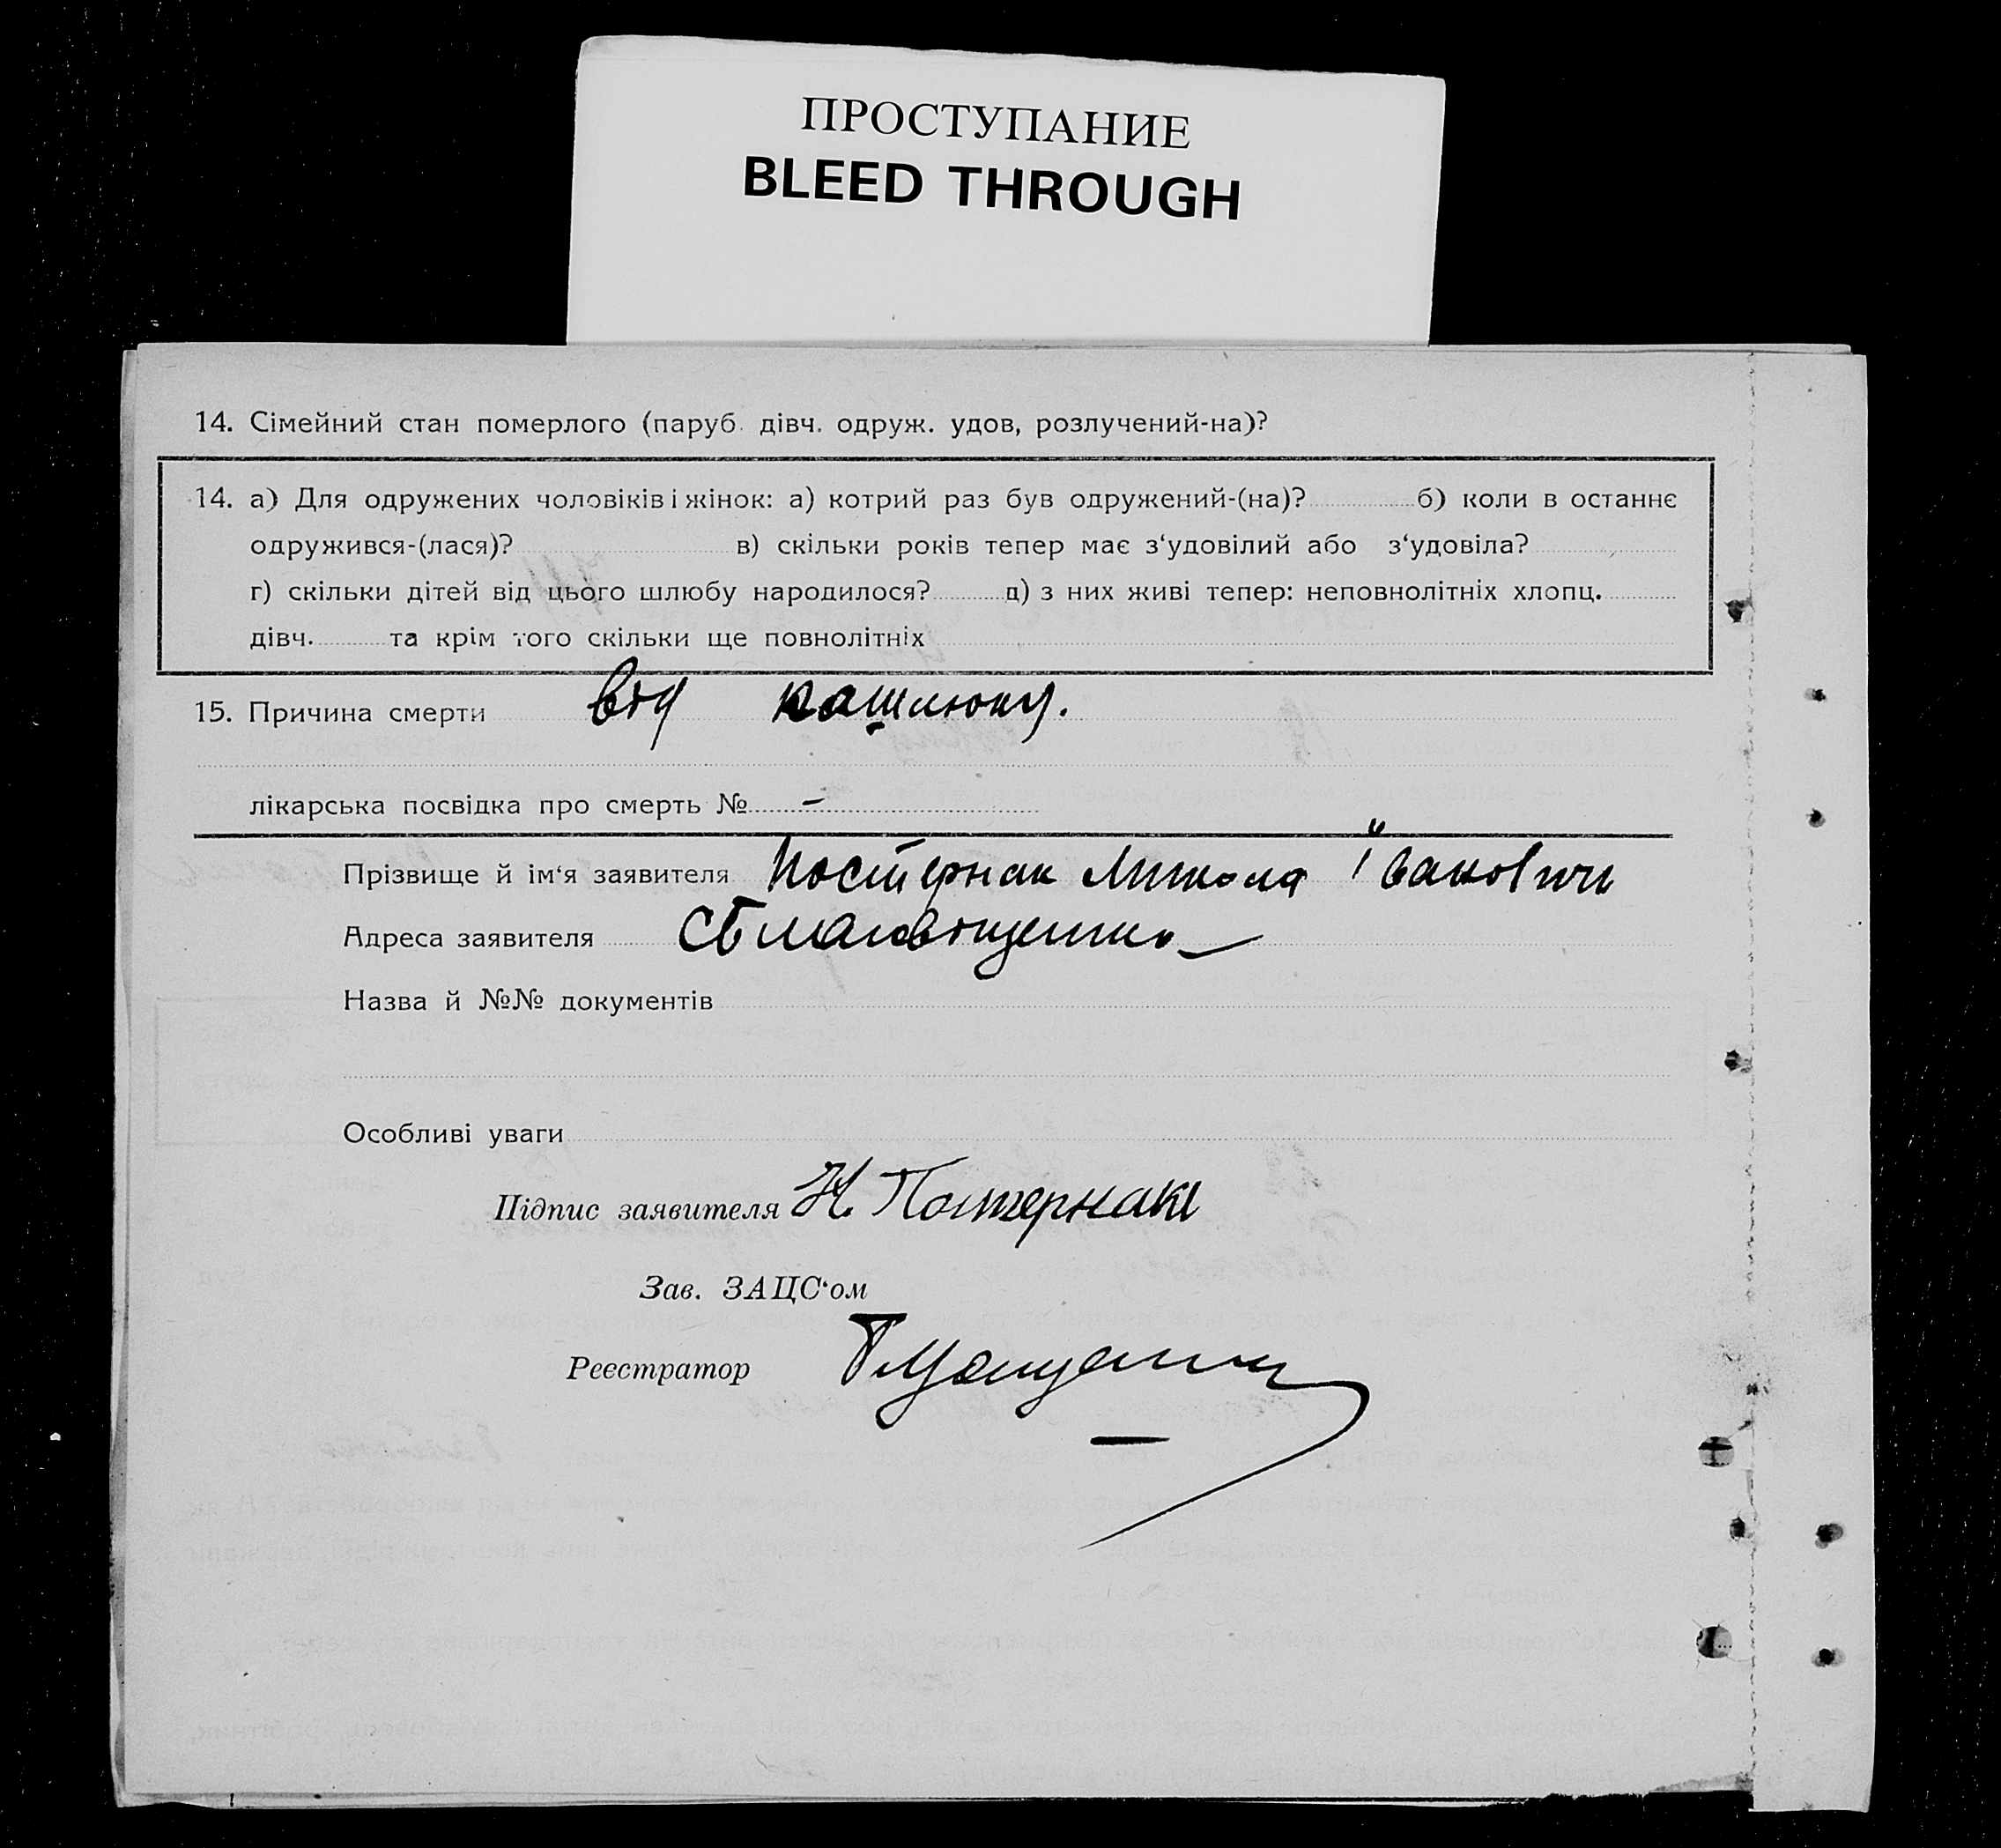 ПРОСТУПАНИЕ
BLEED THROUGH
14. Сімейний стан померлого (паруб. дівч. одруж. удов, розлучений-на)?
14. а) Для одружених чоловіків і жінок: а) котрий раз був одружений-(на)? б) коли в останнє
одружився-(лася)? в) скільки років тепер має з‘удовілий або з‘удовіла?
г) скільки дітей від цього шлюбу народилося? д) з них живі тепер: неповнолітніх хлопц.
дівч. та крім того скільки ще повнолітніх
15. Причина смерти від кашлюку.
лікарська посвідка про смерть № –
Прізвище й ім‘я заявителя Постернак Микола Іванович
Адреса заявителя с Благовіщенка
Назва й №№ документів
Особливі уваги
Підпис заявителя Н. Постернак
Зав. ЗАЦС‘ом
Реєстратор